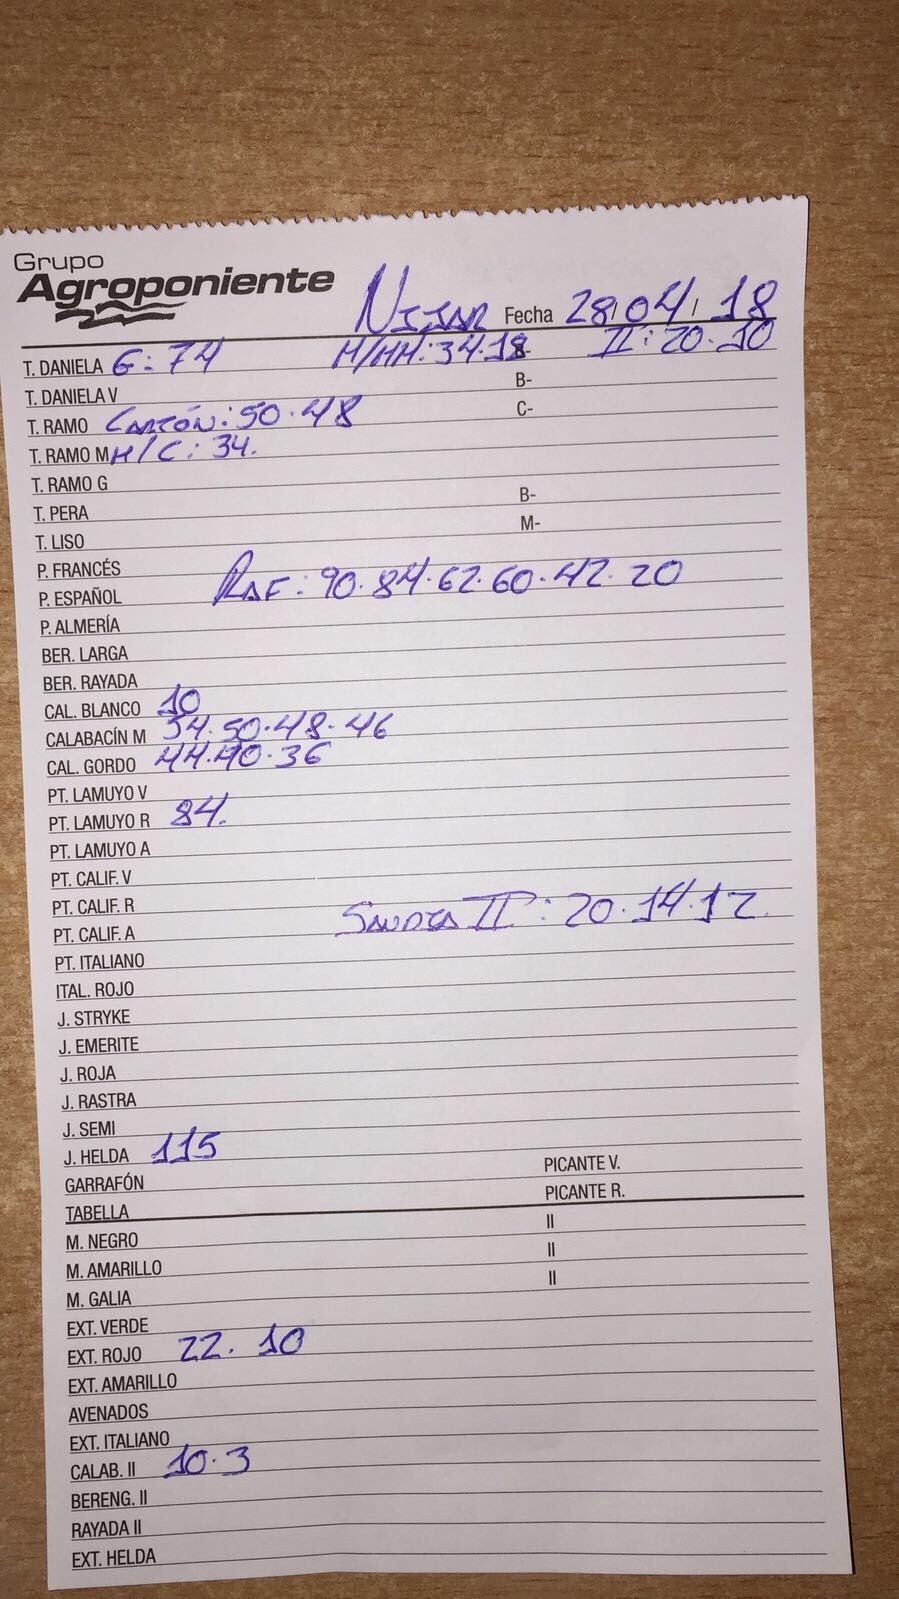 Grupo
Agroponiente
NIJAR Fecha 28/04/18
T. DANIELA G: 74 M/MM: 34.18 II: 20.10
T. DANIELA V B-
T. RAMO CARTÓN: 50.48 C-
T. RAMO M H/C: 34.
T. RAMO G
T. PERA B-
T. LISO M-
P. FRANCÉS
P. ESPAÑOL RAF: 90.84.62.60.42.20
P. ALMERÍA
BER. LARGA
BER. RAYADA
CAL. BLANCO 10
CALABACÍN M 54.50.48.46
CAL. GORDO 44.40.36
PT. LAMUYO V
PT. LAMUYO R 84.
PT. LAMUYO A
PT. CALIF. V
PT. CALIF. R
PT. CALIF. A SANDIA II: 20.14.12
PT. ITALIANO
ITAL. ROJO
J. STRYKE
J. EMERITE
J. ROJA
J. RASTRA
J. SEMI
J. HELDA 115
GARRAFÓN PICANTE V.
TABELLA PICANTE R.
M. NEGRO II
M. AMARILLO II
M. GALIA II
EXT. VERDE
EXT. ROJO 22. 10
EXT. AMARILLO
AVENADOS
EXT. ITALIANO
CALAB. II 10.3
BERENG. II
RAYADA II
EXT. HELDA